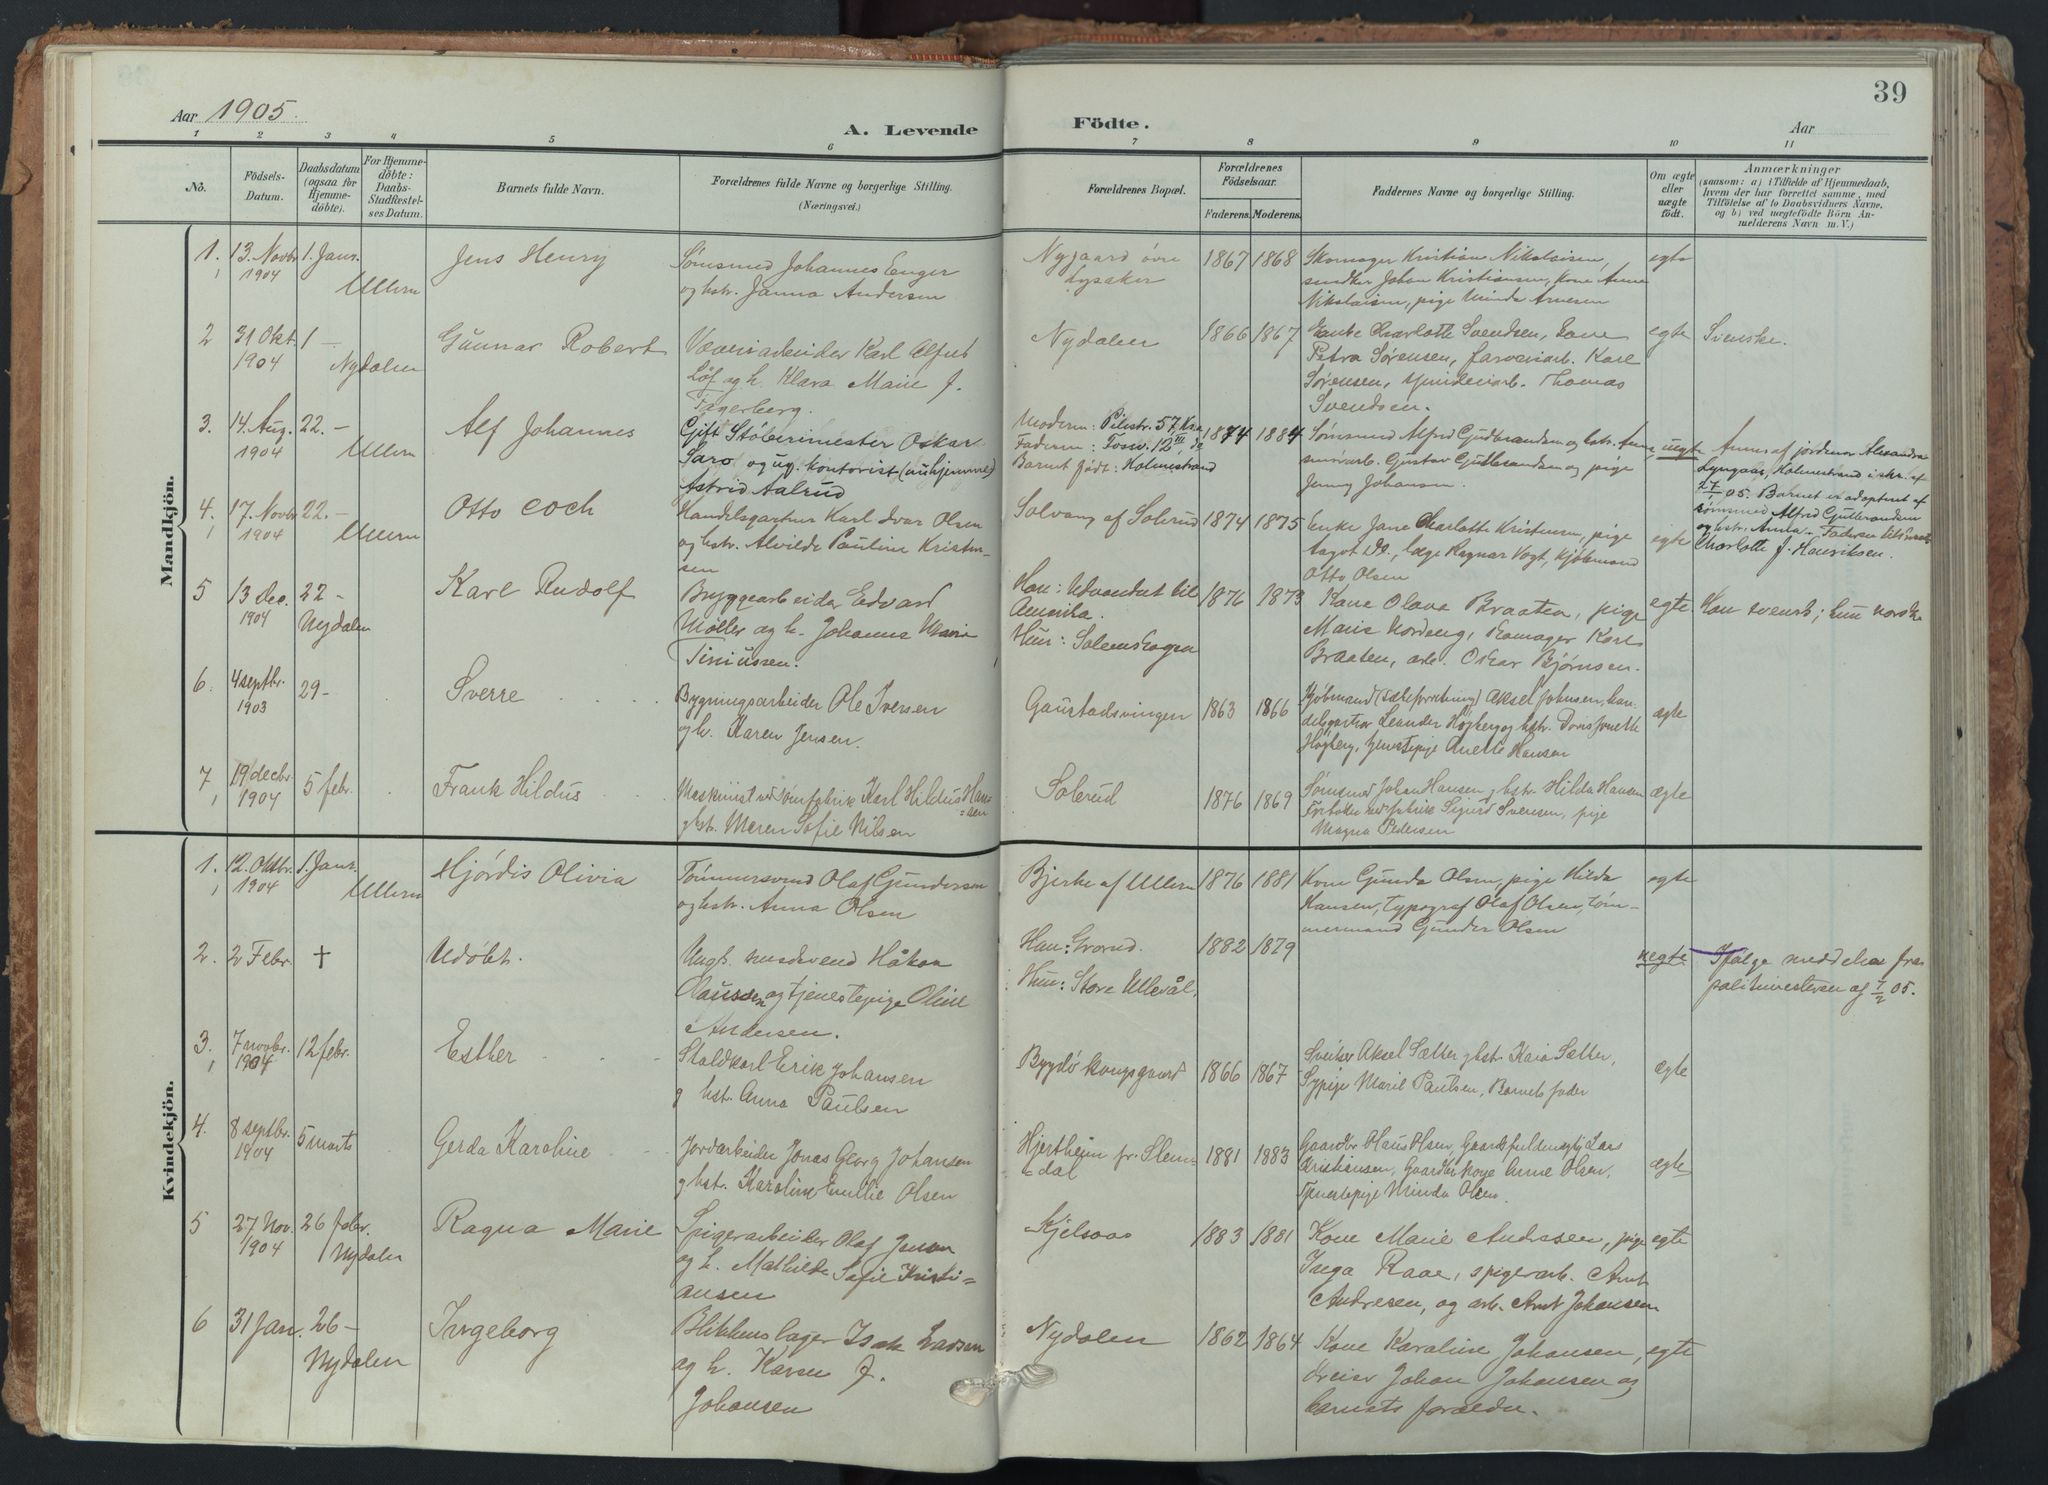 Aar 1905.
A. Levende
1 2 3 4 5 6
No.
Födsels-
Datum.
Daabsdatum
(ogsaa for
Hjemme-
döbte).
For Hjemme-
döbte:
Daabs-
Stadfæstel-
ses Datum.
Barnets fulde Navn.
Forældrenes fulde Navne og borgerlige Stilling.
(Næringsvei.)
Mandkjön.
1. 13. Novbr 1904
1. Janr. Ullern
Jens Henry
Sømsmed Johannes Enger
og hstr. Janna Andersen
2 31 Okt. 1904
1 – Nydalen
Gunnar Robert
Væveriarbeider Karl Alfred
Löf og h. Klara Marie J.
Fagerberg.
3. 14. Aug. 1904
22. – Ullern
Alf Johannes
Gift Støberimester Oskar
Saro og ug. kontorist (nu hjemme)
Astrid Aalrud
4. 17. Novbr 1904
22. – Ullern
Otto Coch
Handelsgartner Karl Ivar Olsen
og hstr. Alvilde Pauline Kristen-
sen
5 13 dec. 1904
22 – Nydalen
Karl Rudolf
Bryggearbeider Edvard
Møller og h. Johanne Marie
Tiniussen.
6. 4 septbr. 1903
29 –
Sverre
Bygningsarbeider Ole Iversen
og h. Karen Jensen.
7 19 decbr. 1904
5 febr.
Frank Hildus
Maskinist ved sømfabrik Karl Hildus Han-
sen
og hst. Maren Sofie Nilsen
Kvindekjön.
1. 12. Oktbr. 1904
1. Janr. Ullern
Hjördis Olivia
Tömmersvend Olaf Gundersen
og hstr. Anna Olsen
2. 2 Febr. †
Udöbt.
Ungk. Håkon
Hansen og tjenestepige Oline
Andersen.
3. 7 novbr. 1904
12 febr.
Esther
Staldkarl Erik Johansen
og hst. Anna Paulsen
4. 8 septbr. 1904
5 marts
Gerda Karoline
Jordarbeider Jonas Georg Johansen
og hst. Karoline Emilie Olsen
5 27 Nov. 1904
26 Febr. Nydalen
Ragna Marie
Spigerarbeider Olaf Jensen
og h. Mathilde Sofie Kristi-
ansen
6 31 Jan.
26 – Nydalen
Ingeborg
Blikkenslager Isak Larsen
og h. Karen J.
Johansen
39
Födte.
Aar
7 8 9 10 11
Forældrenes Bopæl.
Forældrenes
Födselsaar.
Faderens. Moderens.
Faddernes Navne og borgerlige Stilling.
Om ægte
eller
uægte
födt.
Anmærkninger
(saasom: a) i Tilfælde af Hjemmedaab,
hvem der har forrettet samme, med
Tilföielse af to Daabsvidners Navne,
og b) ved uægtefödte Börn An-
melderens Navn m. V.)
Nygaard övre
Lysaker
1867 1868
Skomager Kristian Nikolaisen,
snedker Johan Kristiansen, kone Anna
Nikolaisen, pige Minda Arnesen
egte
Nydalen
1866 1867
Enke Charlotte Svendsen, kone
Petra Sørensen, farveriarb. Karl
Sørensen, spinderiarb. Thomas
Svendsen.
egte
Svenske.
Moderen: Pilestr. 57, Kra.
Faderen: 12 III, do
Barnet født: Holmestrand
1874 1884
Sømsmed Alfred Gudbrandsen og hstr. Anna,
arb. Gustav Gulbrandsen og pige
Jenny Johansen.
uegte
Anm. af jordemor Alexandra
Lyngaas, Holmestrand i skr. af
27/1 05. Barnet er adopteret af
sømsmed Alfred Gulbrandsen
og hstr. Anna. Faderen
Charlotte f. Henriksen.
Solvang af Solerud
1874 1875
Enke Jane Charlotte Kristensen, pige
Do., læge Ragnar Vogt, kjøbmand
Otto Olsen
egte
Han: Udvandret til
Amerika.
Hun: Solemskogen
1876 1873
Kone Olava Braaten, pige
Marie Nordeng, skomager Karl
Braaten, arb. Oskar Bjørnsen.
egte
Han svensk; hun norsk.
Gaustadsvingen
1863 1866
Kjøbmand Aksel Johnsen, han-
delsgartner Leander Högberg og hstr. Doris Jonette
Högberg, tjenestepige Anette Hansen
ægte
Solerud
1876 1869
Sømsmed Johan Hansen og hstr. Hilda Hansen
ved fabrik Sigurd Svensen, pige
Magna Pedersen
ægte
Bjerke af Ullern
1876 1881
Kone Gunda Olsen, pige Hilda
Hansen, typograf Olaf Olsen, töm-
mermand Gunder Olsen
egte
Han: Grorud.
Hun: Store Ullevål.
1882 1879
uegte
Ifølge meddelelse fra
politimesteren af 7/2 05.
Bygdö kongsgaard
1866 1867
Sveitser Aksel Sætter og hst. Kaia Sætter,
Sypige Marie Paulsen, Barnets fader
ægte
Hjertheim pr. Slem-
dal
1881 1883
Gaardbr Olaus Olsen, Lars
Kristiansen, Gaardbr kone Anne Olsen,
Tjenestepige Minda Olsen
ægte
Kjelsaas
1883 1881
Kone Marie Andresen, pige
Inga Raae, spigerarb. Arnt
Andresen, og arb. Arnt Johansen
egte
Nydalen
1862 1864
Kone Karoline Johansen,
dreier Johan Johansen og
barnets forældre.
egte